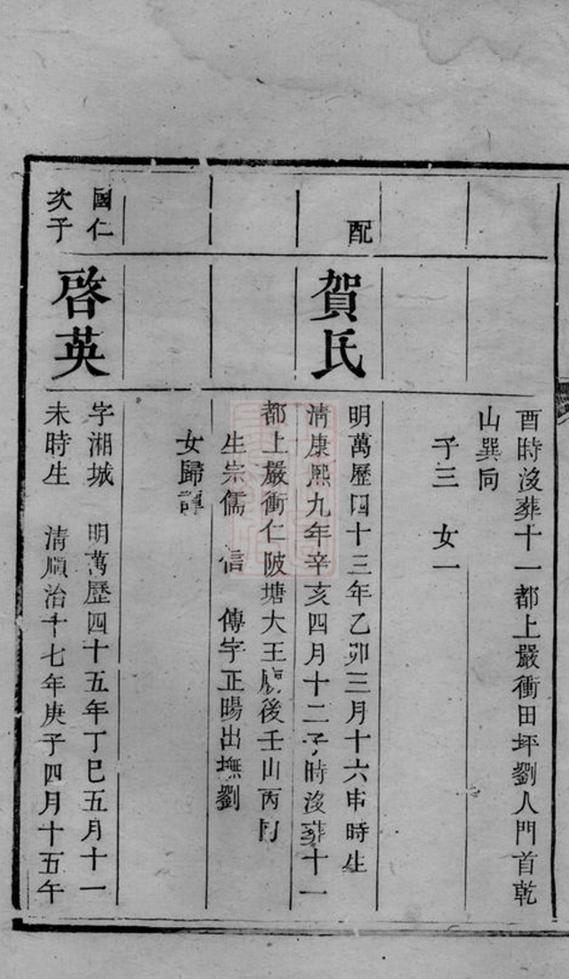 酉時沒葬十一都上嚴衝田坪劉人門首乾
山巽向
子三　女一
配
賀氏
明萬歷四十三年乙卯三月十六申時生
清康熙九年辛亥四月十二子時沒葬十一
都上嚴衝仁陂塘大王廟後壬山丙向
生宗儒　信　傳字正暘出撫劉
女歸譚
國仁
次子
啓英
字湘城　明萬歷四十五年丁巳五月十一
未時生　清順治十七年庚子四月十五午